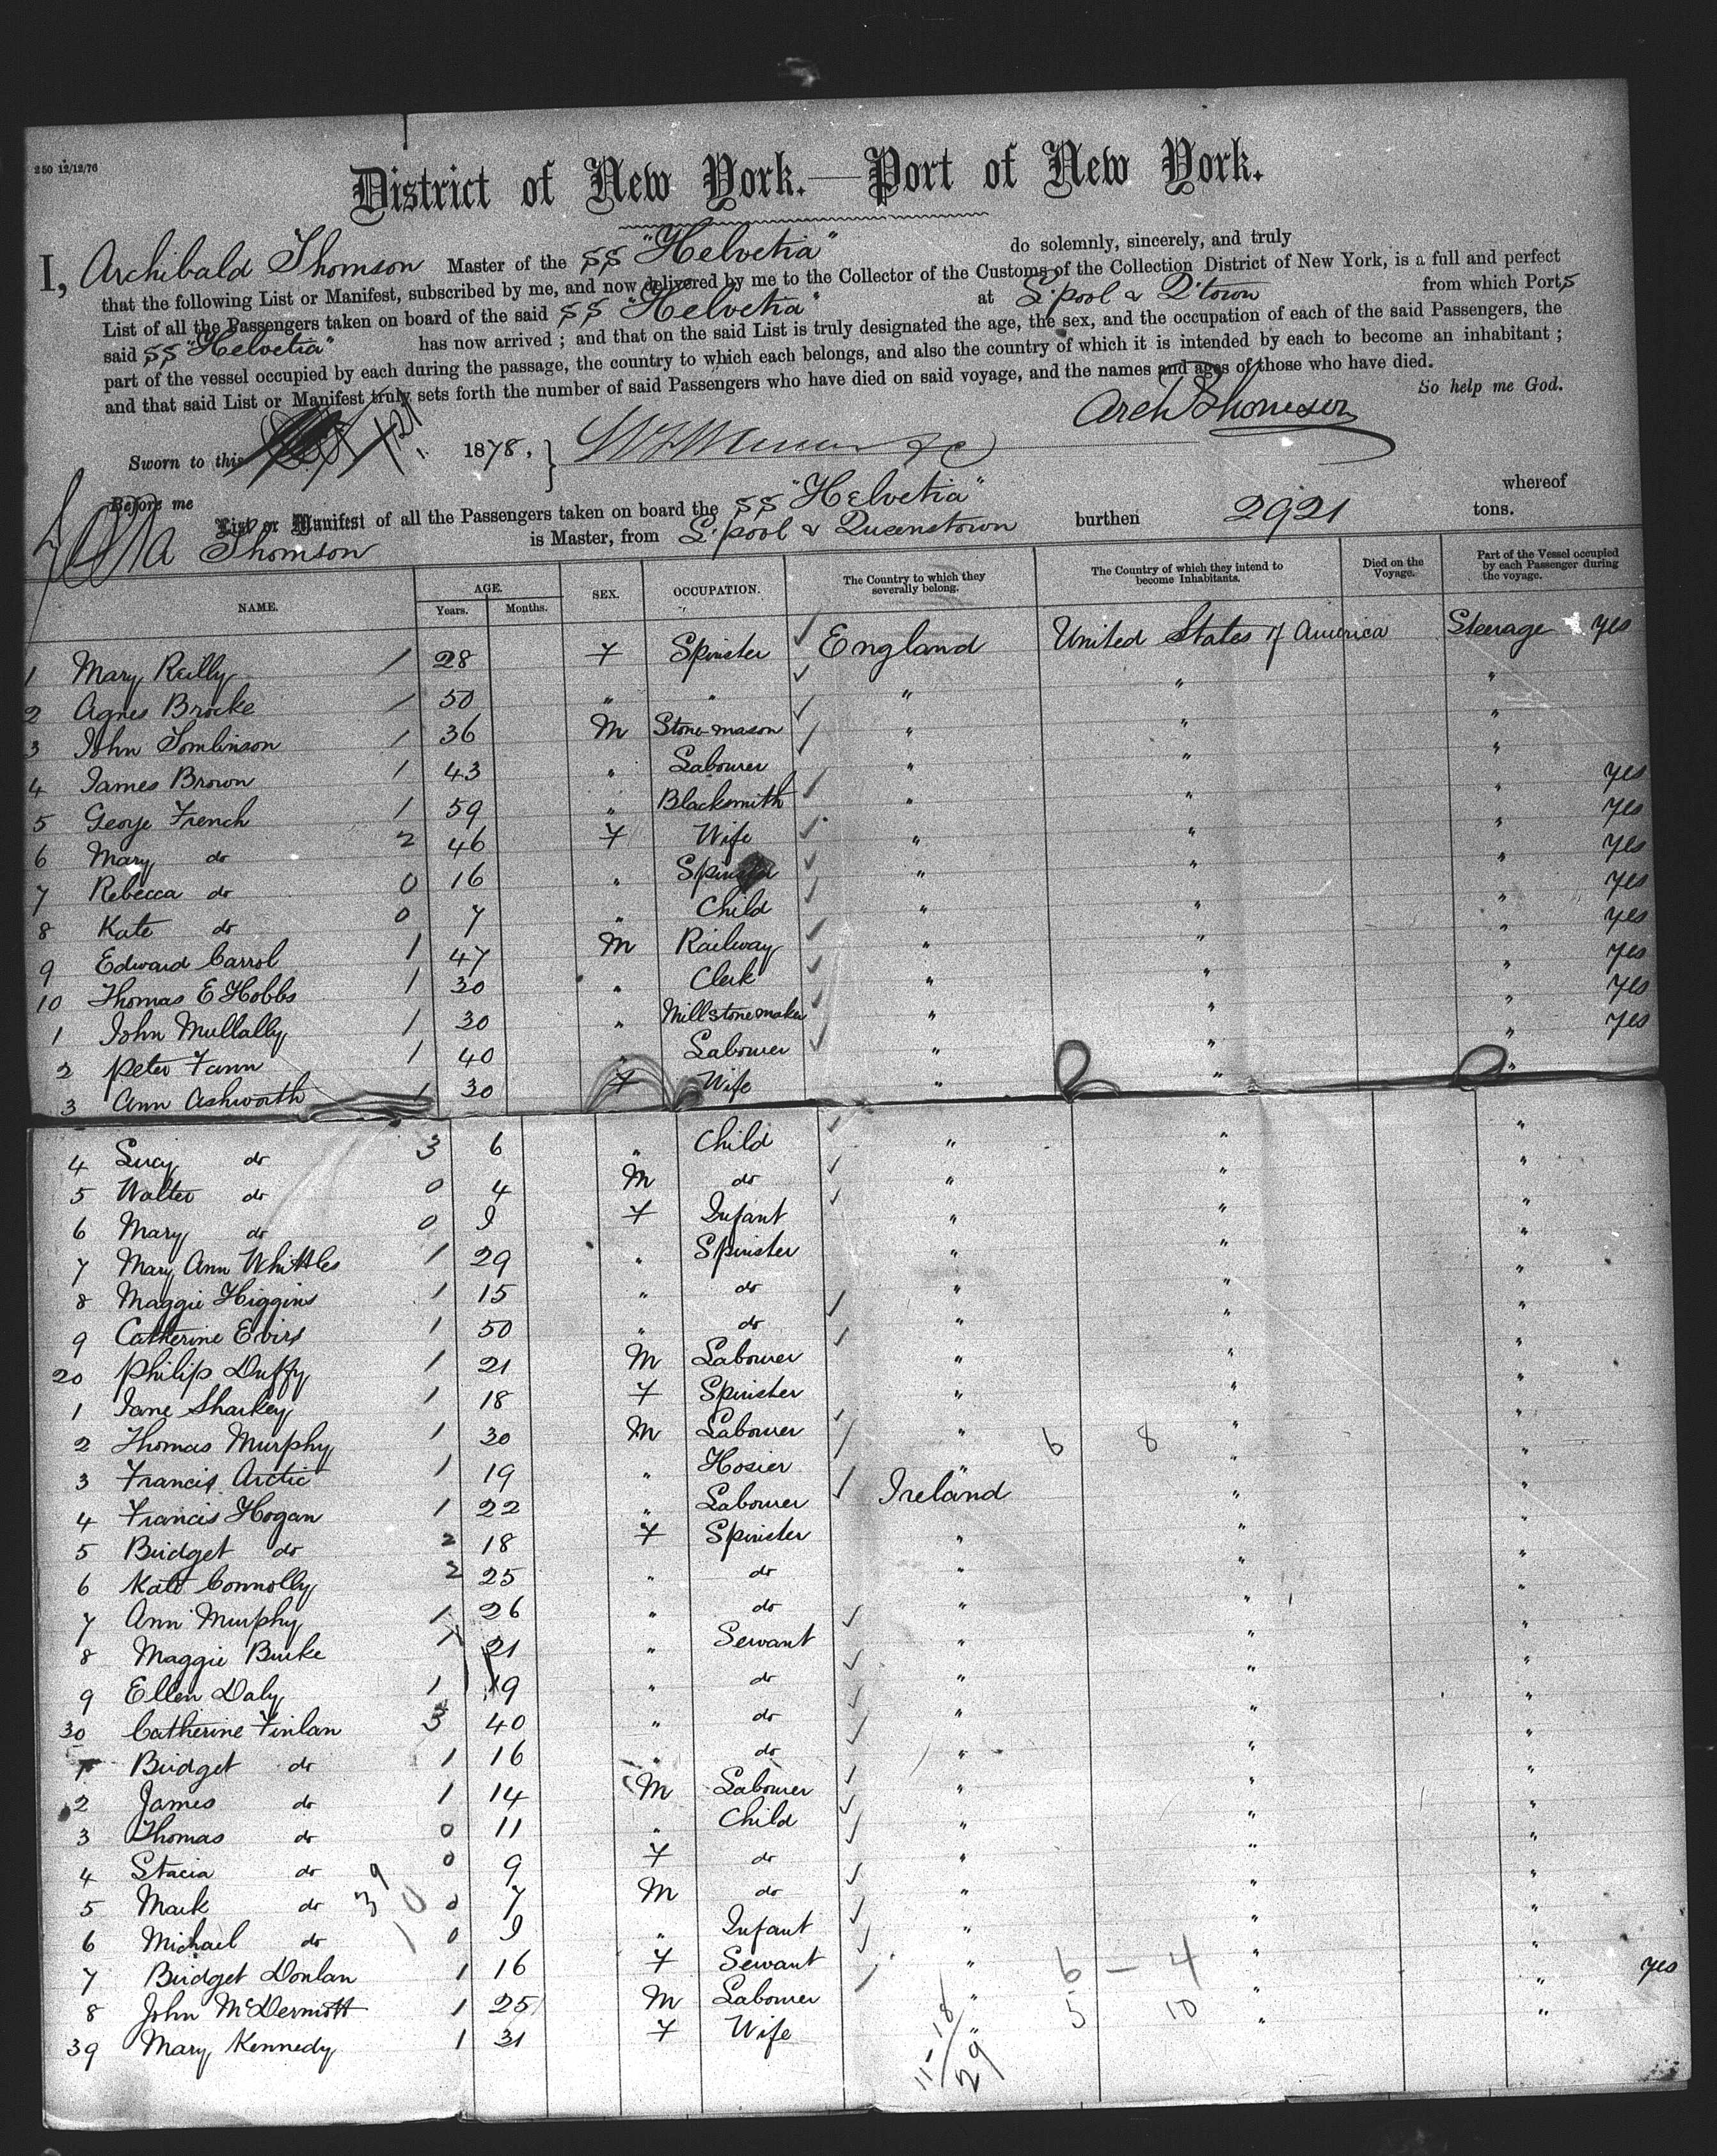 250 12/12/76
District of New York.—Port of New York.
I, Archibald Thomson Master of the SS "Helvetia" do solemnly, sincerely, and truly
that the following List or Manifest, subscribed by me, and now delivered by me to the Collector of the Customs of the Collection District of New York, is a full and perfect
List of all the Passengers taken on board of the said SS "Helvetia" at L'pool & Q'town from which Ports
said SS "Helvetia" has now arrived ; and that on the said List is truly designated the age, the sex, and the occupation of each of the said Passengers, the
part of the vessel occupied by each during the passage, the country to which each belongs, and also the country of which it is intended by each to become an inhabitant ;
and that said List or Manifest truly sets forth the number of said Passengers who have died on said voyage, and the names and ages of those who have died.
So help me God.
Arch Thomson
Sworn to this 1878,
Before me
List or Manifest of all the Passengers taken on board the SS "Helvetia" whereof
Thomson is Master, from L'pool & Queenstown burthen 2921 tons.
NAME. AGE. Years. Months. SEX. OCCUPATION. The Country to which they severally belong. The Country of which they intend to become Inhabitants. Died on the Voyage. Part of the Vessel occupied by each Passenger during the voyage.
1 Mary Reilly 1 28 F Spinster England United States of America Steerage yes
2 Agnes Brocke 1 50 " " " " "
3 John Tomlinson 1 36 M Stone mason " " "
4 James Brown 1 43 " Labourer " " "
5 George French 1 59 " Blacksmith " " " yes
6 Mary do 2 46 F Wife " " " yes
7 Rebecca do 0 16 " Spinster " " " yes
8 Kate do 0 7 " Child " " " yes
9 Edward Carrol 1 47 M Railway " " " yes
10 Thomas E Hobbs 1 30 " Clerk " " " yes
1 John Mullally 1 30 " Millstonemaker " " " yes
2 Peter Fann 1 40 " Labourer " " " yes
3 Ann Ashworth 1 30 F Wife " " "
4 Lucy do 3 6 " Child " " "
5 Walter do 0 4 M do " " "
6 Mary do 0 9 F Infant " " "
7 Mary Ann Whittles 1 29 " Spinster " " "
8 Maggie Higgins 1 15 " do " " "
9 Catherine Evirs 1 50 " do " " "
20 Philip Duffy 1 21 M Labourer " " "
1 Jane Sharkey 1 18 F Spinster " " "
2 Thomas Murphy 1 30 M Labourer " 6 8 " "
3 Francis Arctic 1 19 " Hosier " " "
4 Francis Hogan 1 22 " Labourer Ireland " "
5 Bridget do 2 18 F Spinster " " "
6 Kate Connolly 2 25 " do " " "
7 Ann Murphy 1 26 " do " " "
8 Maggie Burke 1 21 " Servant " " "
9 Ellen Daly 1 19 " do " " "
30 Catherine Finlan 3 40 " do " " "
1 Bridget do 1 16 " do " " "
2 James do 1 14 M Labourer " " "
3 Thomas do 0 11 " Child " " "
4 Stacia do 0 9 F do " " "
5 Mark do 39 0 7 M do " " "
6 Michael do 10 0 9 " Infant " " "
7 Bridget Donlan 1 16 F Servant " 6 - 4 " "
8 John McDermott 1 25 M Labourer " 5 10 " " yes
39 Mary Kennedy 1 31 F Wife " " "
11 18
29